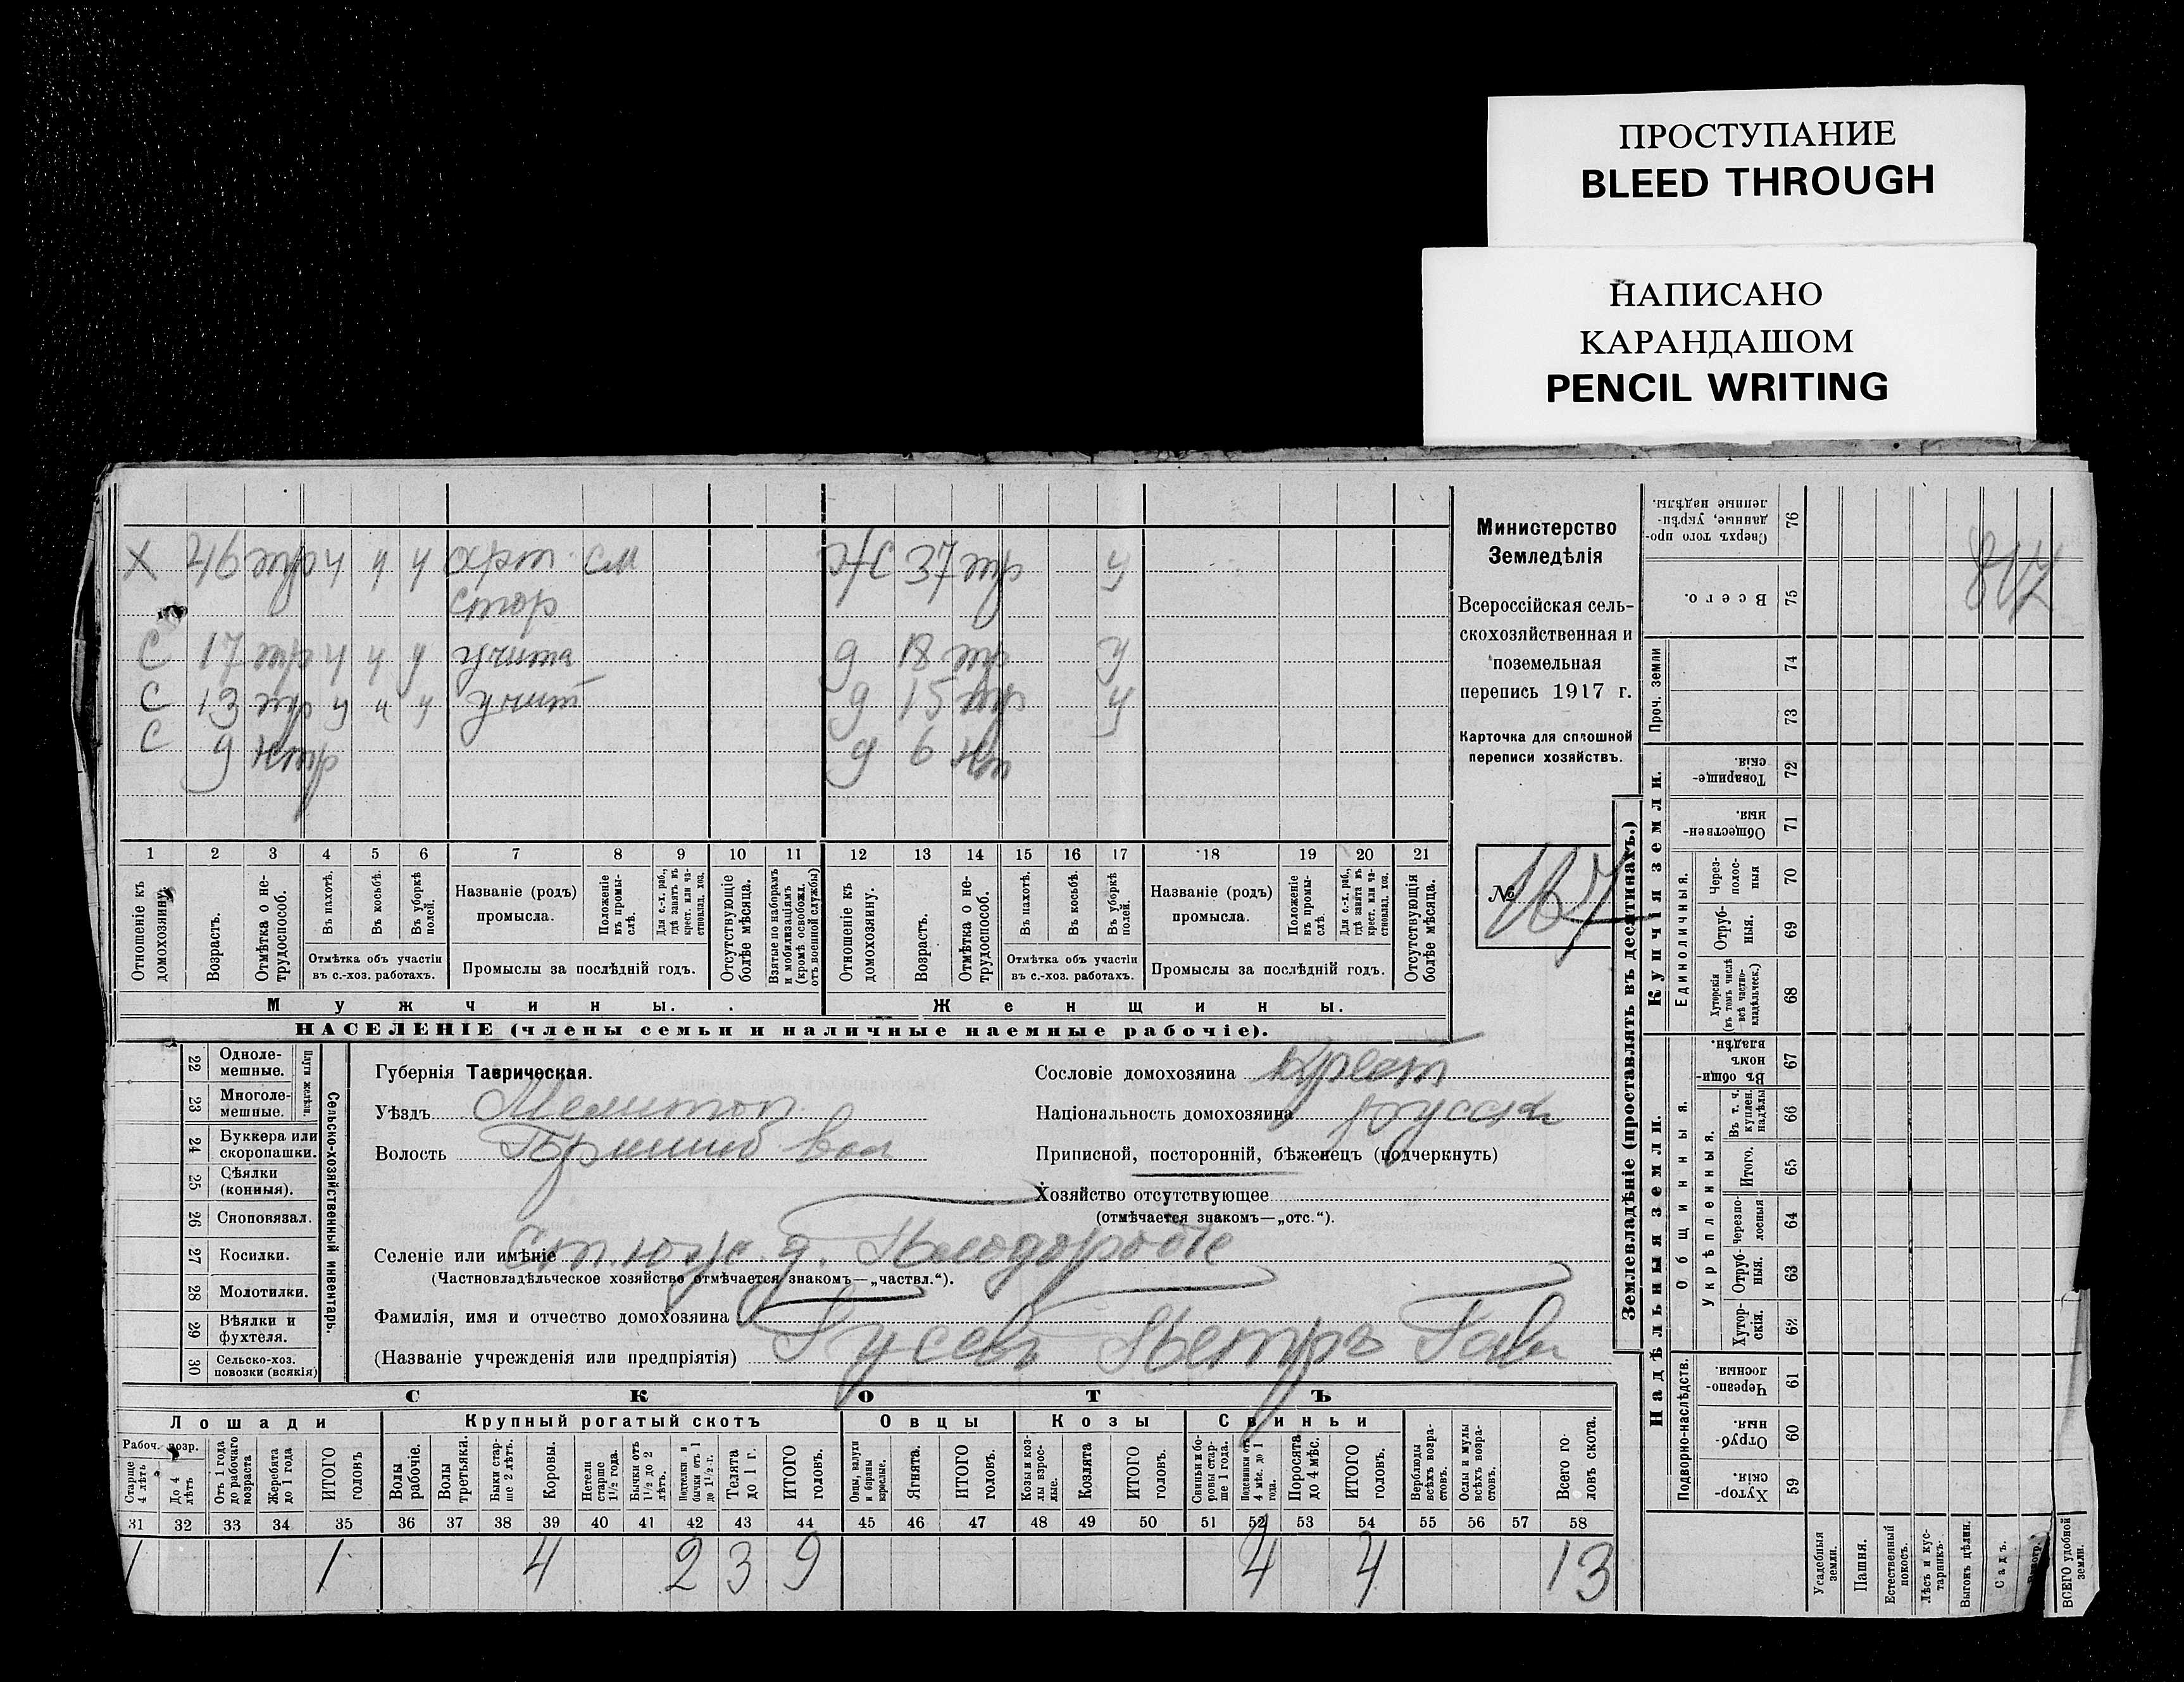 ПРОСТУПАНИЕ
BLEED THROUGH
НАПИСАНО
КАРАНДАШОМ
PENCIL WRITING
Х 46 4 ч ч см ЖС 37 ч
С 17 ч ч ч д 18 ч
С 13 ч ч ч д 15 ч
С 9 д 6
1 2 3 4 5 6 7 8 9 10 11 12 13 14 15 16 17 18 19 20 21
Отношеніе къ домохозяину.
Возрастъ.
Отмѣтка о не-
трудоспособ.
Въ пахотѣ.
Въ косьбѣ.
Въ уборкѣ
полей.
Отмѣтка объ участіи
въ с.-хоз. работахъ.
Названіе (родъ)
промысла.
Положеніе
въ промы-
слѣ.
Для с.-х. раб.,
гдѣ занятъ въ
крест. или ча-
стновлад. хоз.
Промыслы за послѣдній годъ.
Отсутствующіе
болѣе мѣсяца.
Взятые по наборамъ
и мобилизаціямъ
(кромѣ освобожд.
отъ военной службы)
Отношеніе къ
домохозяину.
Возрастъ.
Отмѣтка о не-
трудоспособ.
Въ пахотѣ.
Въ косьбѣ.
Въ уборкѣ
полей.
Отмѣтка объ участіи
въ с.-хоз. работахъ.
Названіе (родъ)
промысла.
Положеніе
въ промы-
слѣ.
Для с.-х. раб.,
гдѣ занята въ
крест. или ча-
стновлад. хоз.
Промыслы за послѣдній годъ.
Отсутствующія
болѣе мѣсяца.
Мужчины.
Женщины.
НАСЕЛЕНІЕ (члены семьи и наличные наемные рабочіе).
Министерство
Земледѣлія
Всероссійская сель-
скохозяйственная и
поземельная
перепись 1917 г.
Карточка для сплошной
переписи хозяйствъ.
№ 167
22 Одноле-
мешные.
23 Многоле-
мешные.
Плуги желѣзн.
24 Буккера или
скоропашки.
25 Сѣялки
(конныя).
26 Сноповязал.
27 Косилки.
28 Молотилки.
29 Вѣялки и
фухтеля.
30 Сельско-хоз.
повозки (всякія)
Сельско-хозяйственный инвентарь.
Губернія Таврическая.
Уѣздъ Мелитоп
Волость
Сословіе домохозяина крест
Національность домохозяина русск
Приписной, посторонній, бѣженецъ (подчеркнуть)
Хозяйство отсутствующее
(отмѣчается знакомъ—„отс.“).
Селеніе или имѣніе
(Частновладѣльческое хозяйство отмѣчается знакомъ—„частвл.“).
Фамилія, имя и отчество домохозяина
(Названіе учрежденія или предпріятія) Гусевъ Петръ Гав
СКОТЪ
Лошади
Крупный рогатый скотъ
Овцы
Козы
Свиньи
Рабоч. возр.
Старше
4 лѣтъ
До 4
лѣтъ
Отъ 1 года
до рабочаго
возраста
Жеребята
до 1 года
ИТОГО
головъ
Волы
рабочіе.
Волы
третьяки.
Быки стар-
ше 2 лѣтъ.
Коровы.
Нетели
старше
1½ года.
Бычки отъ
1½ до 2
лѣтъ.
Подтелки и
бычки отъ 1
до 1½ г.
Телята
до 1 г.
ИТОГО
головъ.
Овцы, валухи
и бараны
взрослые.
Ягнята.
ИТОГО
головъ.
Козы и коз-
лы взрос-
лые.
Козлята
ИТОГО
головъ.
Свиньи и бо-
ровы стар-
ше 1 года.
Подсвинки отъ
4 мѣс. до 1
года.
Поросята
до 4 мѣс.
ИТОГО
головъ.
Верблюды
всѣхъ возра-
стовъ.
Ослы и мулы
всѣхъ возра-
стовъ.
Всего го-
ловъ скота.
31 32 33 34 35 36 37 38 39 40 41 42 43 44 45 46 47 48 49 50 51 52 53 54 55 56 57 58
1 1 4 2 3 9 4 4 13
Землевладѣніе (проставлять въ десятинахъ.)
Сверхъ того про-
данные, укрѣп-
ленные надѣлы. 76
Всего. 75
Проч. земли
74
73
Купчія земли.
Товарище-
скія. 72
Обществен-
ныя. 71
Единоличныя.
Через-
полос-
ныя 70
Отруб-
ныя. 69
Хуторскія
(въ томъ числѣ
всѣ частно-
владѣльческ.) 68
Надѣльныя земли.
Общинныя.
Въ общи-
номъ
владѣн. 67
Укрѣпленныя.
Въ т. ч.
куплен.
надѣлы 66
Итого. 65
Черезпо-
лосныя 64
Отруб-
ныя. 63
Хутор-
скія. 62
Подворно-наслѣдств.
Черезпо-
лосныя. 61
Отруб-
ныя. 60
Хутор-
скія. 59
Усадебныя
земли.
Пашня.
Естественный
покосъ.
Лѣсъ и кус-
тарникъ.
Выгонъ цѣлин.
Садъ.
ВСЕГО удобной
земли.